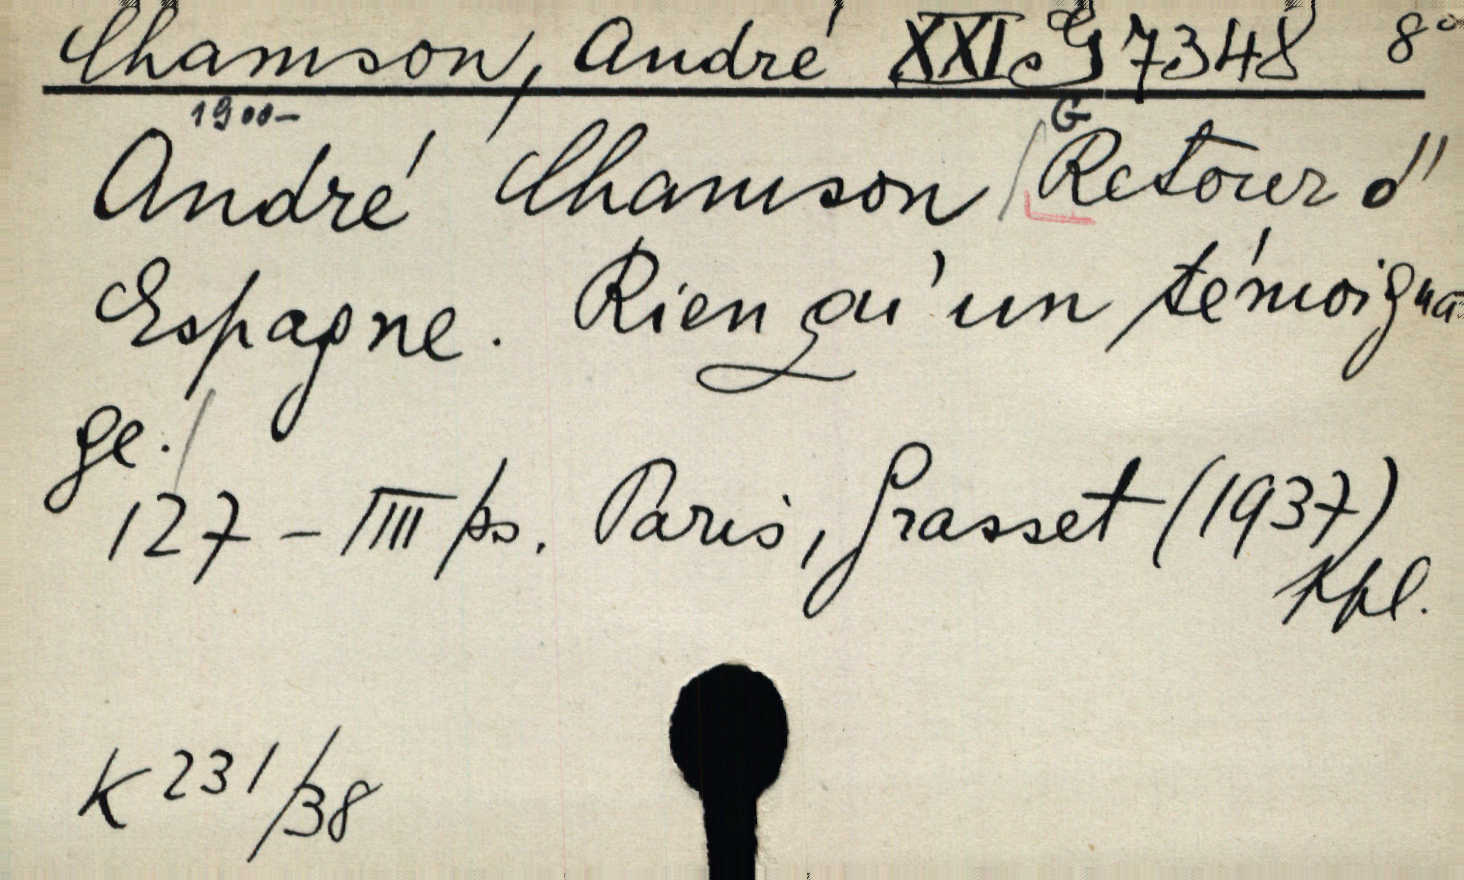 Chamson, André XXI G 7348 8°
1900-
G
André Chamson Retour d'
Espagne. Rien qu'un témoigna-
ge.
127 - IIII ps. Paris, Grasset (1937)
Kpl.
K 231/38